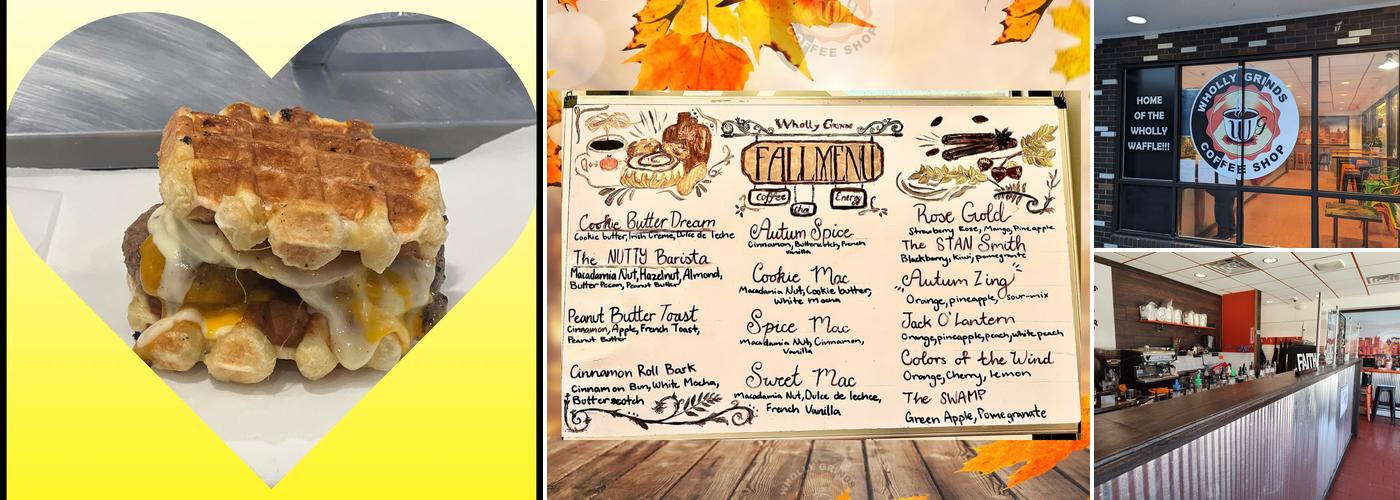 COFFEE SHOP
Wholly Grinds
FALL MENU
Coffee
Chai
Energy
Cookie Butter Dream
Cookie butter, Irish Creme, Dulce de Leche
The NUTTY Barista
Macadamia Nut, Hazelnut, Almond,
Butter Pecan, Peanut Butter
Peanut Butter Toast
Cinnamon, Apple, French Toast,
Peanut Butter
Cinnamon Roll Bark
Cinnamon Bun, White Mocha,
Butterscotch
Autum Spice
Cinnamon, Butterscotch, French
Vanilla
Cookie Mac
Macadamia Nut, Cookie butter,
White mocha
Spice Mac
Macadamia Nut, Cinnamon,
Vanilla
Sweet Mac
Macadamia Nut, Dulce de lechce,
French Vanilla
Rose Gold
Strawberry Rose, Mango, Pineapple
The STAN Smith
Blackberry, Kiwi, pomegranate
"Autumn Zing"
Orange, pineapple, sour-mix
Jack O'Lantern
Orange, pineapple, peach, white peach
Colors of the Wind
Orange, Cherry, lemon
The SWAMP
Green Apple, Pomegranate
WHOLLY GRINDS
HOME
OF THE
WHOLLY
WAFFLE!!!
WHOLLY GRINDS
Wg
COFFEE SHOP
FAITH